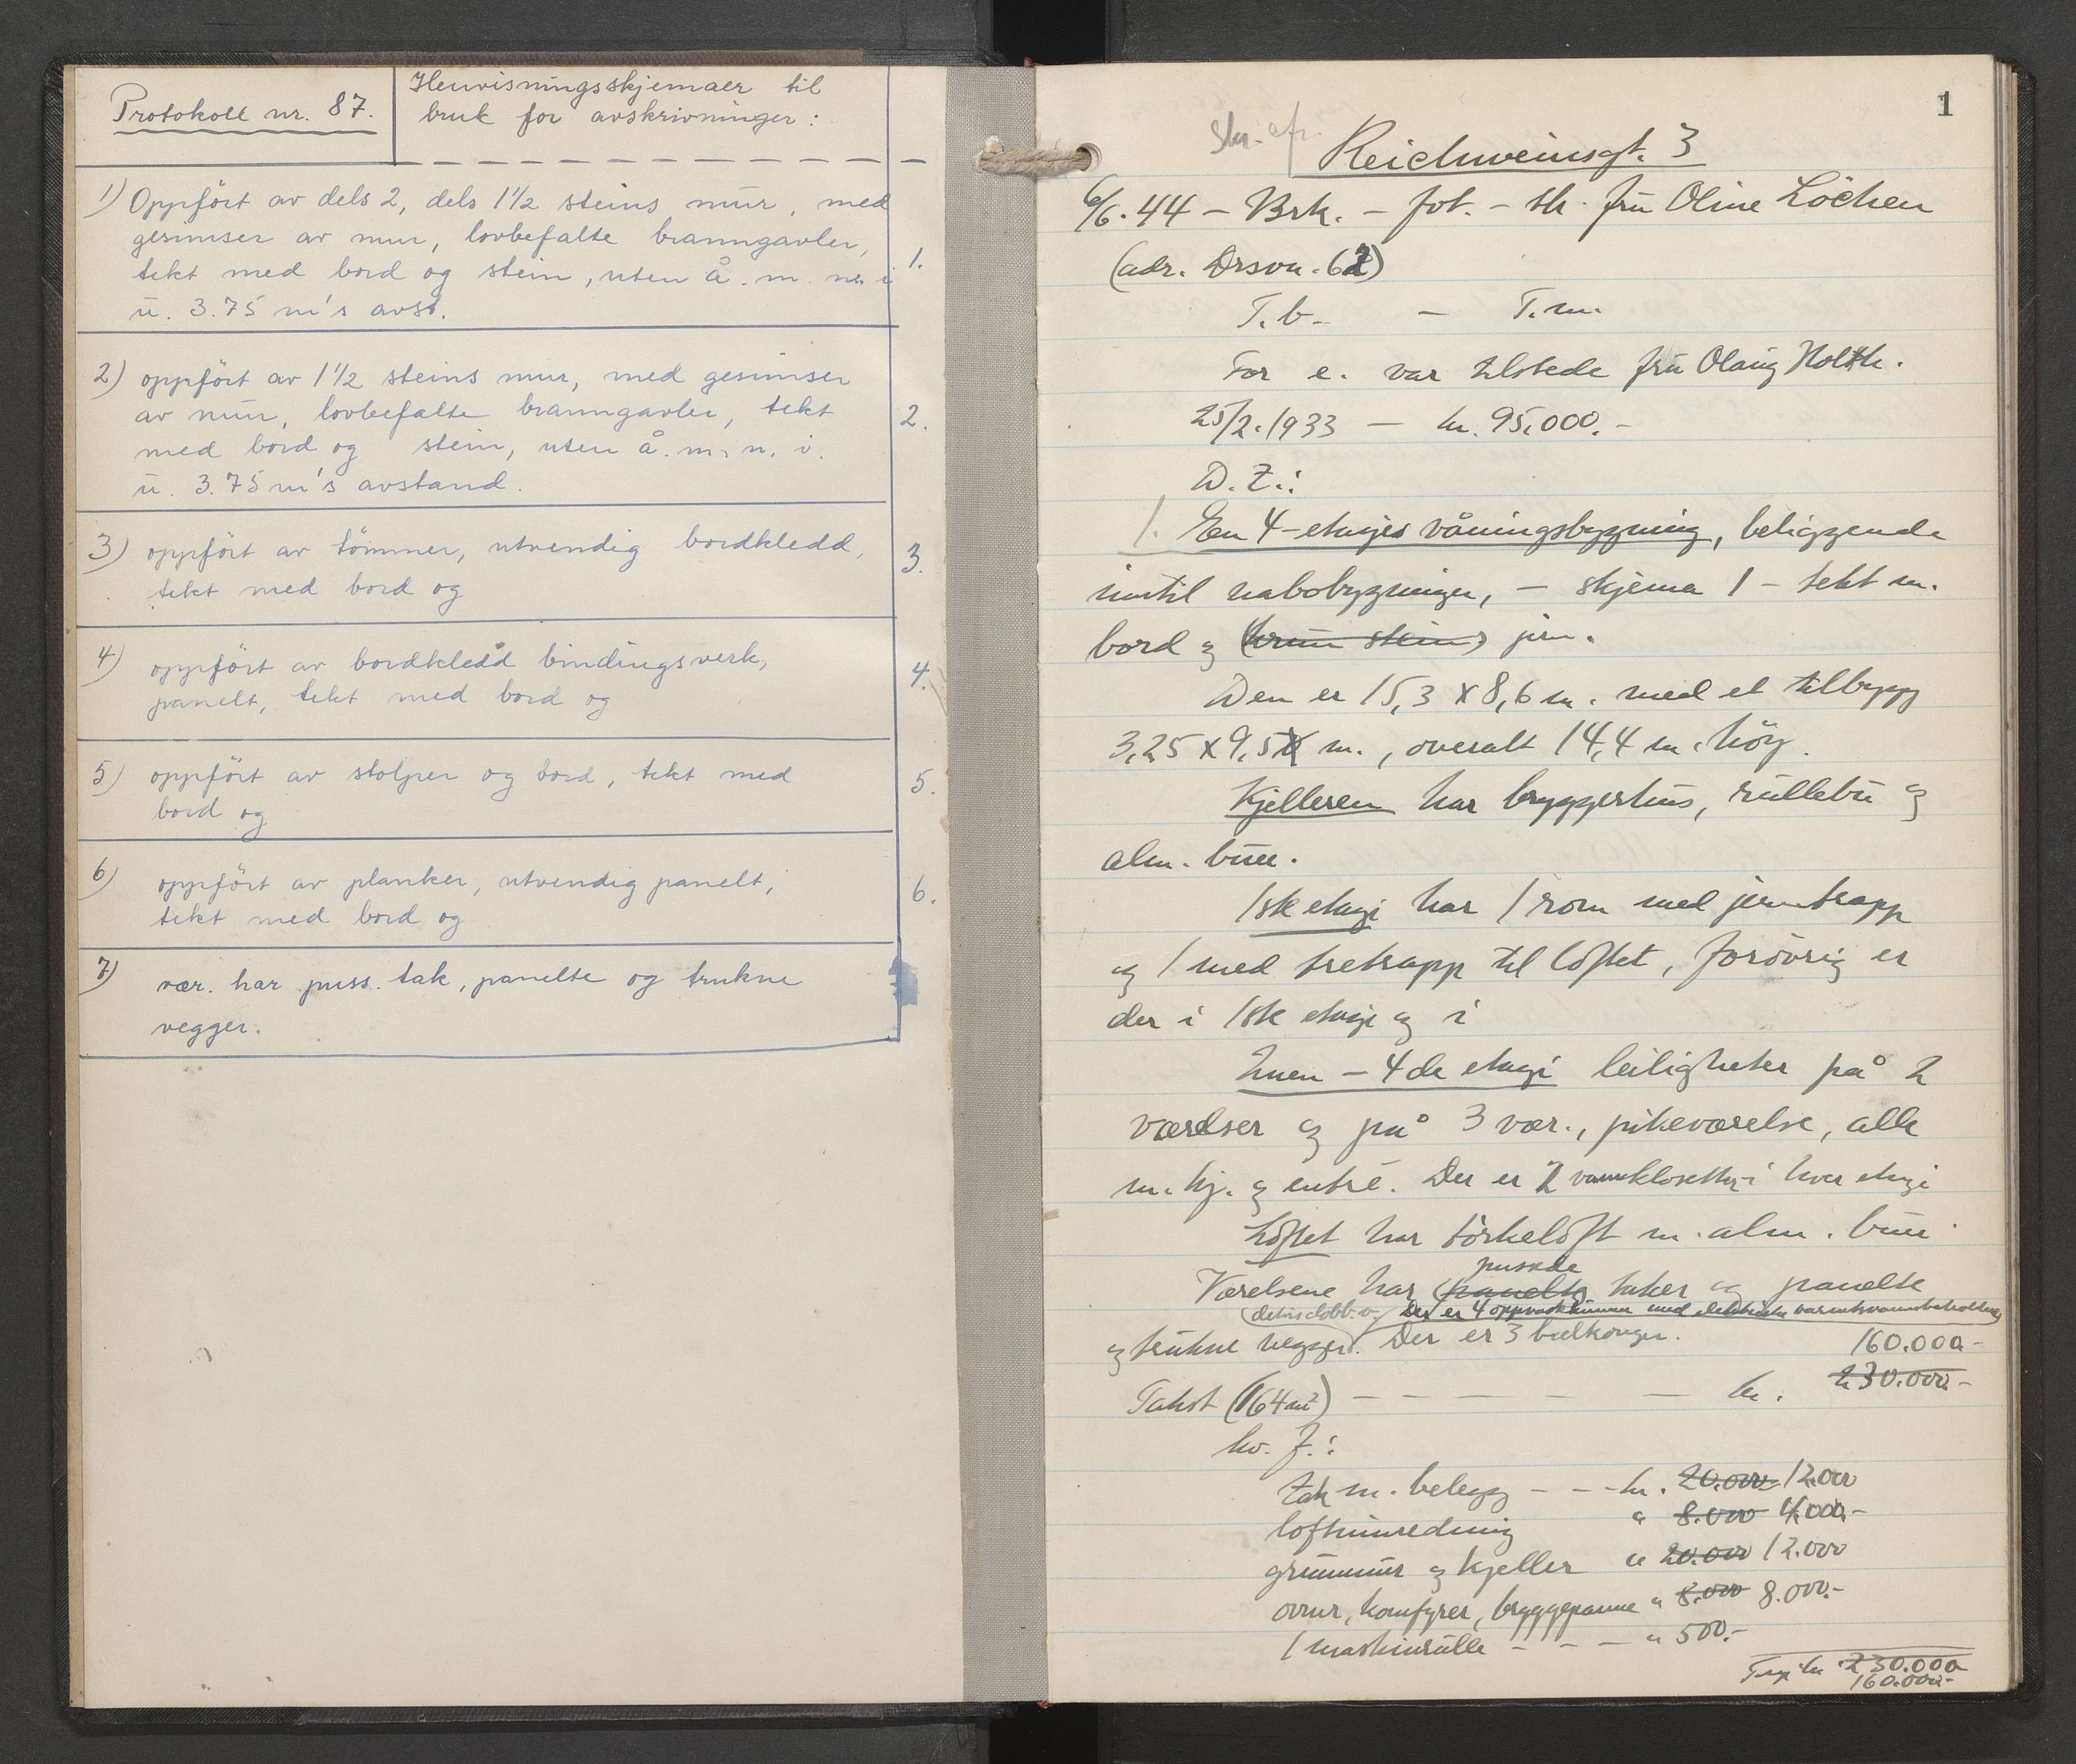 Protokoll nr. 87.
Henvisningsskjemaer til
bruk for avskrivninger:
1) Oppført av dels 2, dels 1 1/2 steins mur, med
gesimser av mur, lovbefalte branngavler,
tekt med bord og stein, uten å. m. n. i
u. 3.75 m's avst.
1.
2) oppført av 1 1/2 steins mur, med gesimser
av mur, lovbefalte branngavler, tekt
med bord og stein, uten å. m. n. i.
u. 3.75 m's avstand.
2.
3) oppført av tømmer, utvendig bordkledd,
tekt med bord og
3.
4) oppført av bordkledd bindingsverk,
panelt, tekt med bord og
4.
5) oppført av stolper og bord, tekt med
bord og
5.
6) oppført av planker, utvendig panelt,
tekt med bord og
6.
7) vær. har puss. tak, panelte og trukne
vegger.
1
Skr. afr.
Reichweinsgt. 3
6/6.44 – Brk. – fot. – tlh. fru Oline Löchen
(adr. Drsvn. 62)
T.b. – T.m.
For e. var tilstede fru Olaug Holth.
25/2.1933 — kr. 95.000.-
D. Z.:
1. En 4-etasjes våningsbygning, beliggende
inntil nabobygninger, – skjema 1 – tekt m.
bord og (krum stein) jern.
Den er 15,3 x 8,6 m. med et tilbygg
3,25 x 9,5 m., overalt 14,4 m. höy.
Kjelleren har bryggerhus, rullebu og
alm. buer.
1ste etasje har 1 rom med jerntrapp
og 1 med tretrapp til loftet, forövrig er
der i 1ste etasje og i
2nen – 4de etasje leiligheter på 2
værelser og på 3 vær., pikeværelse, alle
m. kj. og entré. Der er 2 vannklosetter i hver etasje
Loftet har törkeloft m. alm. buer.
pussede
Værelsene har (panelte) taker og panelte
(delvis dobb. v.) Der er 4 oppvaskkummer med elektriske varmtvannsbeholdere
og trukne vegger. Der er 3 balkonger.
160.000-
Takst (164 m²) — — — — — kr. 230.000-
hv. f.:
tak m. belegg - - - kr. 20.000 12.000
loftsinnredning " 8.000 4.000-
grunnmur og kjeller " 20.000 12.000
ovner, komfyrer, bryggepanne " 8.000 8.000.-
1 maskinrulle - - - " 500.-
230.000
160.000-